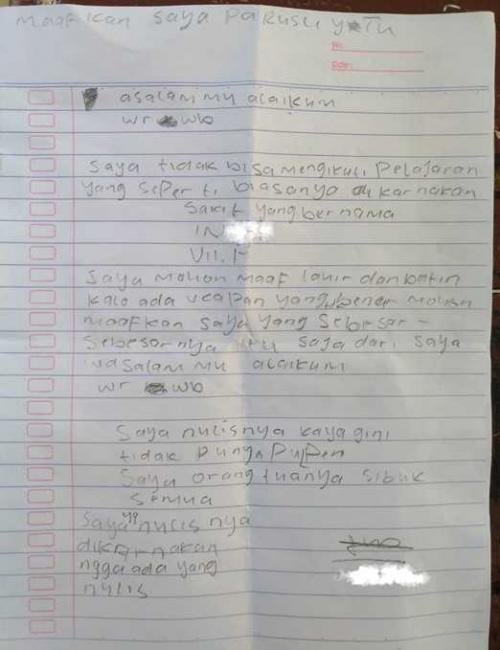 maafkan saya Pakusu y Tu
No.
Date.
asalam mu alaikum
wr wb
Saya tidak bisa mengikuti Pelajaran
yang seperti biasanya karnakan
Sakit yang bernama
IN
VII.F
Saya Mohon maaf lahir dan batin
kalo ada ucapan yang bener mohon
maafkan saya yang Sebesar-
Sebesornya itu saja dari saya
wasalam mu alaikum
wr wb
Saya nulisnya kaya gini
tidak Punya Pulpen
Saya orang tuanya sibuk
semua
Saya yg nulis nya
dikarnakan
ngga ada yang
nulis